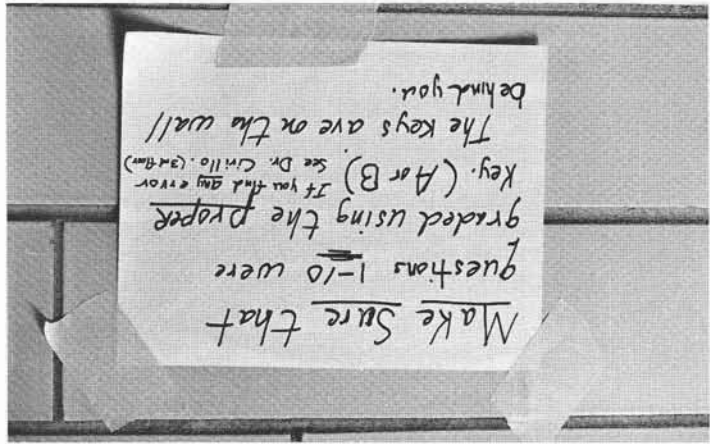 Make Sure that
questions 1-10 were
graded using the proper
Key. (A or B) If you find any error
See Dr. Cirillo. (3rd floor)
The Keys are on the wall
behind you.